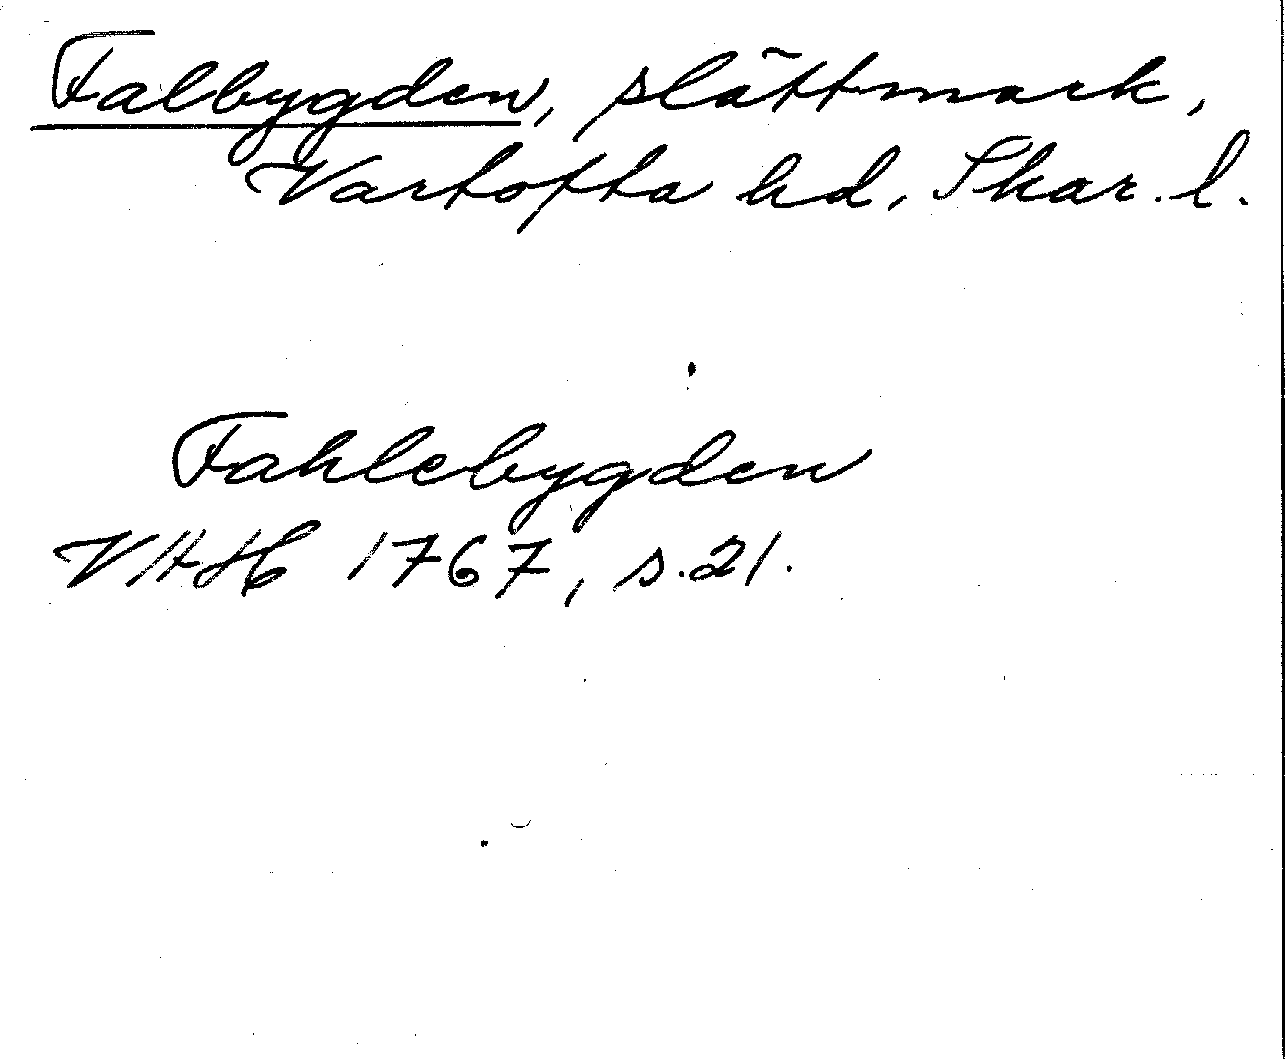 Falbygden, slättmark,
Vartofta hd, Skar. l.
Fahlebygden
VAH 1767, s.21.